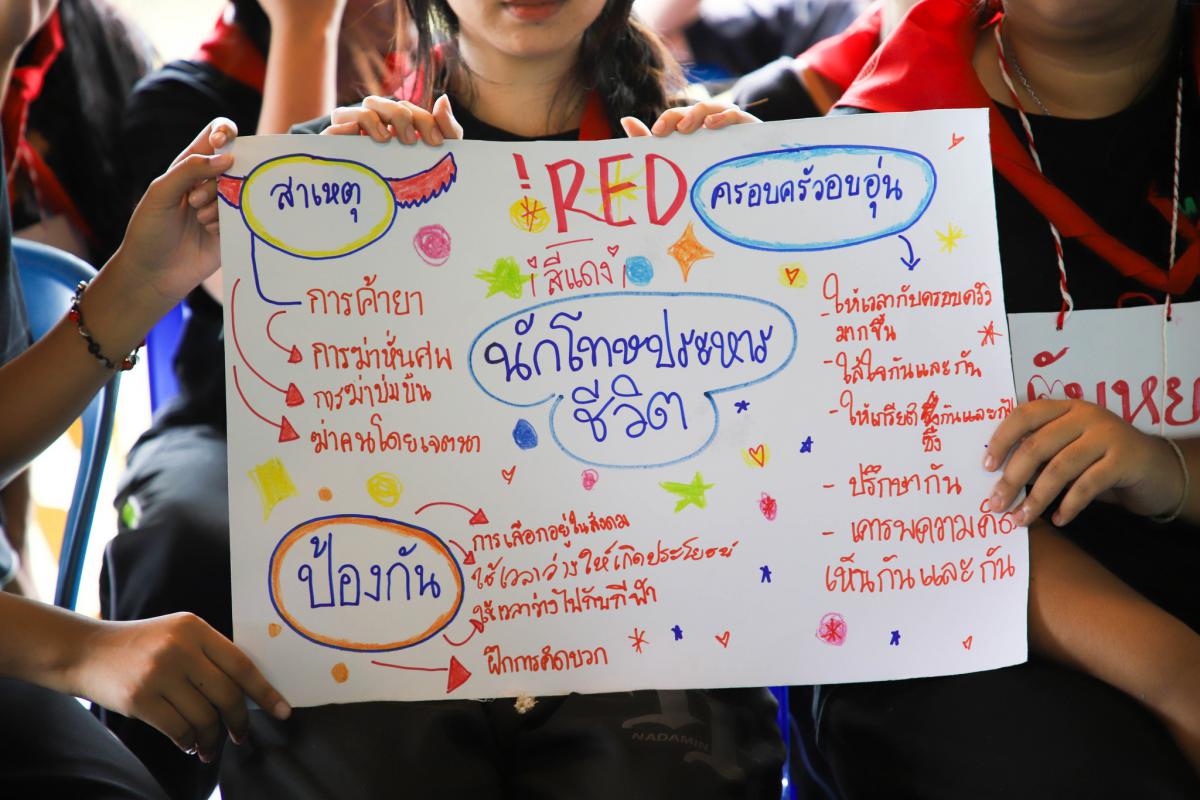 ! RED
สีแดง
นักโทษประหาร
ชีวิต
สาเหตุ
การค้ายา
การฆ่าหั่นศพ
การฆ่าข่มขืน
ฆ่าคนโดยเจตนา
ป้องกัน
การเลือกอยู่ในสังคม
ใช้เวลาว่างให้เกิดประโยชน์
ใช้เวลาว่างไปกับกีฬา
ฝึกการคิดบวก
ครอบครัวอบอุ่น
- ให้เวลากับครอบครัว
มากขึ้น
- ใส่ใจกันและกัน
- ให้เกรียติซึ่งกันและกัน
ซึ่ง
- ปรึกษากัน
- เคารพความคิด
เห็นกันและกัน
NADAMIN